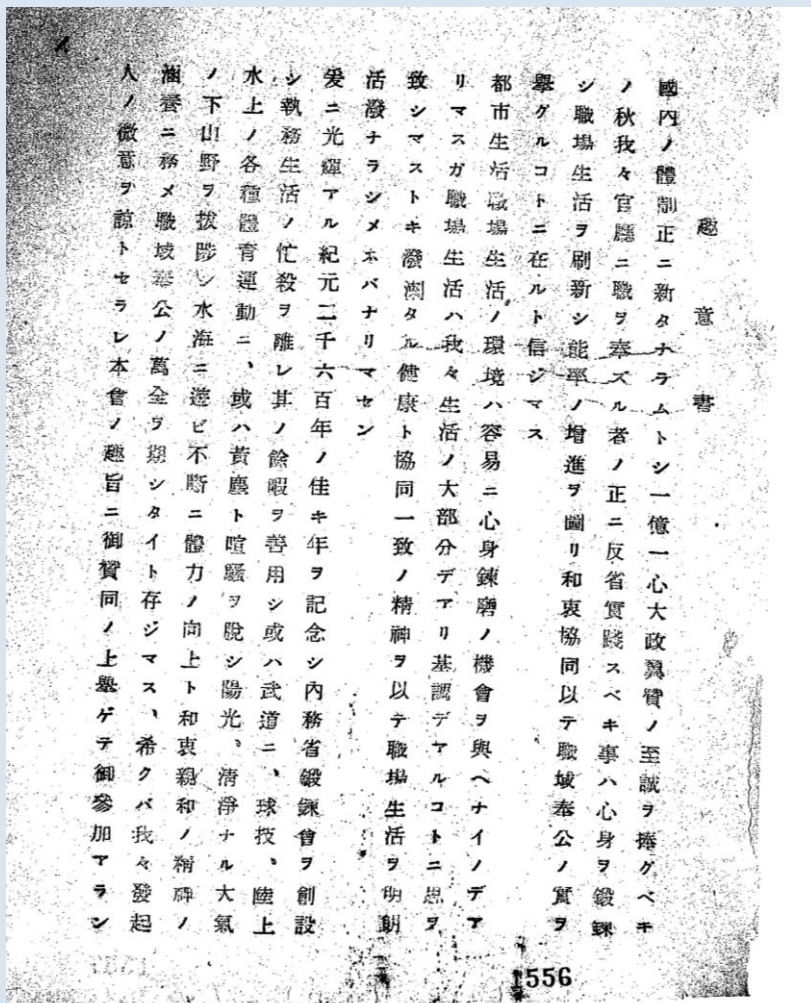 趣意書
國內ノ體制正ニ新タナラムトシ一億一心大政翼賛ノ至誠ヲ捧グベキ
ノ秋我々官廳ニ職ヲ奉ズル者ノ正ニ反省實踐スベキ事ハ心身ヲ鍛錬
シ職場生活ヲ刷新シ能率ノ増進ヲ圖リ和衷協同以テ職域奉公ノ實ヲ
擧グルコトニ在ルト信ジマス
都市生活職場生活ノ環境ハ容易ニ心身錬磨ノ機會ヲ與ヘナイノデア
リマスガ職場生活ハ我々生活ノ大部分デアリ基調デアルコトニ思ヲ
致シマストキ潑溂タル健康ト協同一致ノ精神ヲ以テ職場生活ヲ明朗
活潑ナラシメネバナリマセン
爰ニ光輝アル紀元二千六百年ノ佳キ年ヲ記念シ內務省鍛錬會ヲ創設
シ執務生活ノ忙殺ヲ離レ其ノ餘暇ヲ善用シ或ハ武道ニ、球技、陸上
水上ノ各種體育運動ニ、或ハ黃塵ト喧騷ヲ脫シ陽光、清淨ナル大氣
ノ下山野ヲ拔踄シ水海ニ遊ビ不斷ニ體力ノ向上ト和衷親和ノ精神ノ
涵養ニ務メ職域奉公ノ萬全ヲ期シタイト存ジマス、希クバ我々發起
人ノ微意ヲ諒トセラレ本會ノ趣旨ニ御賛同ノ上擧ゲテ御參加アラン
1556